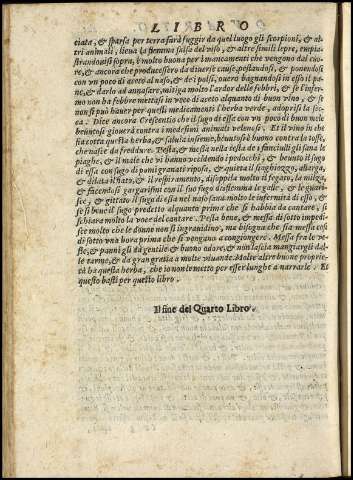 LIBRO
ciata, & sparsa per terra farà fuggir da quel luogo gli scorpioni, & al-
tri animali, lieua la fiemma salsa del viso, & altre simili lepre, empia
strandouisi sopra, è molto buona per i mancamenti che vengono dal cuo-
re, & ancora che producessero da diuerse cause, pestandosi, & ponendosi
con vn poco di aceto al naso, & de i polsi, ouero bagnandosi in esso il pa-
ne, & darlo ad annasare, mitiga molto l'ardor delle febbri, & se l'infer-
mo non ha febbre mettasi in vece di aceto olquanto di buon vino, & se
non si può hauer per quelli medicamenti l'herba verde, adoprisi la sec-
ca. Dice ancora Crescentio che il sugo di essa con vn poco di buon mele
beuuto si giouerà contra i medesimi animali velenosi. Et il vino in che
sia cotta questa herba, & saluia insieme, beuuto sia buono contra la tosse,
che nasce da freddure. Pesta, & messa nella testa de i fanciulli gli sana le
piaghe, & il male che vi hanno vccidendo i pedocchi, & beunto il sugo
di essa con sugo di pomi granati riposa, & quieta il singhiozzo, allarga,
& dilata il fiato, & il respiramento, assoppila molto il fegato, la milza,
& facendosi gargarismi con il suo sugo disfiemma le galle, & le guari-
sce, & gittato il sugo di essa nel naso sana molte infermità di esso, &
se si beue il sugo predetto alquanto prima che si habbia da cantare, si
schiara molto la voce del cantare. Pesta bene, & messa di sotto impedi-
sce molto che le donne non si ingrauidino, ma bisogna che sia messa cosi
di sotto vna hora prima che si vengano a congiongere. Messa fra le ve-
ste, & panni gli da gentile & buono odore, & non lascia mangiargli dal-
le tarme, & da gran gratia a molte viuande. Molte altre buone proprie-
tà ha questa herba, che io non le metto per esser lunghe a narrarle. Et
questo basti per questo libro.
Il fine del Quarto Libro.